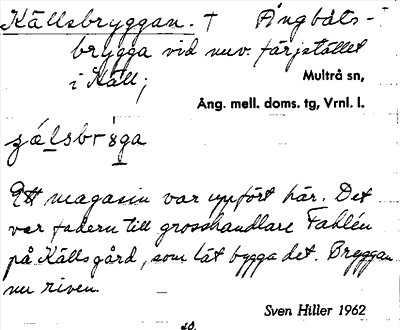 Källsbryggan. † Ångbåts-
brygga vid nuv. färjstället
i Käll;
Multrå sn,
Ång. mell. doms. tg, Vrnl. l.
Ett magasin var uppfört här. Det
var fadern till grosshandlare Fahlén
på Källsgård, som lät bygga det. Bryggan
nu riven.
Sven Hiller 1962